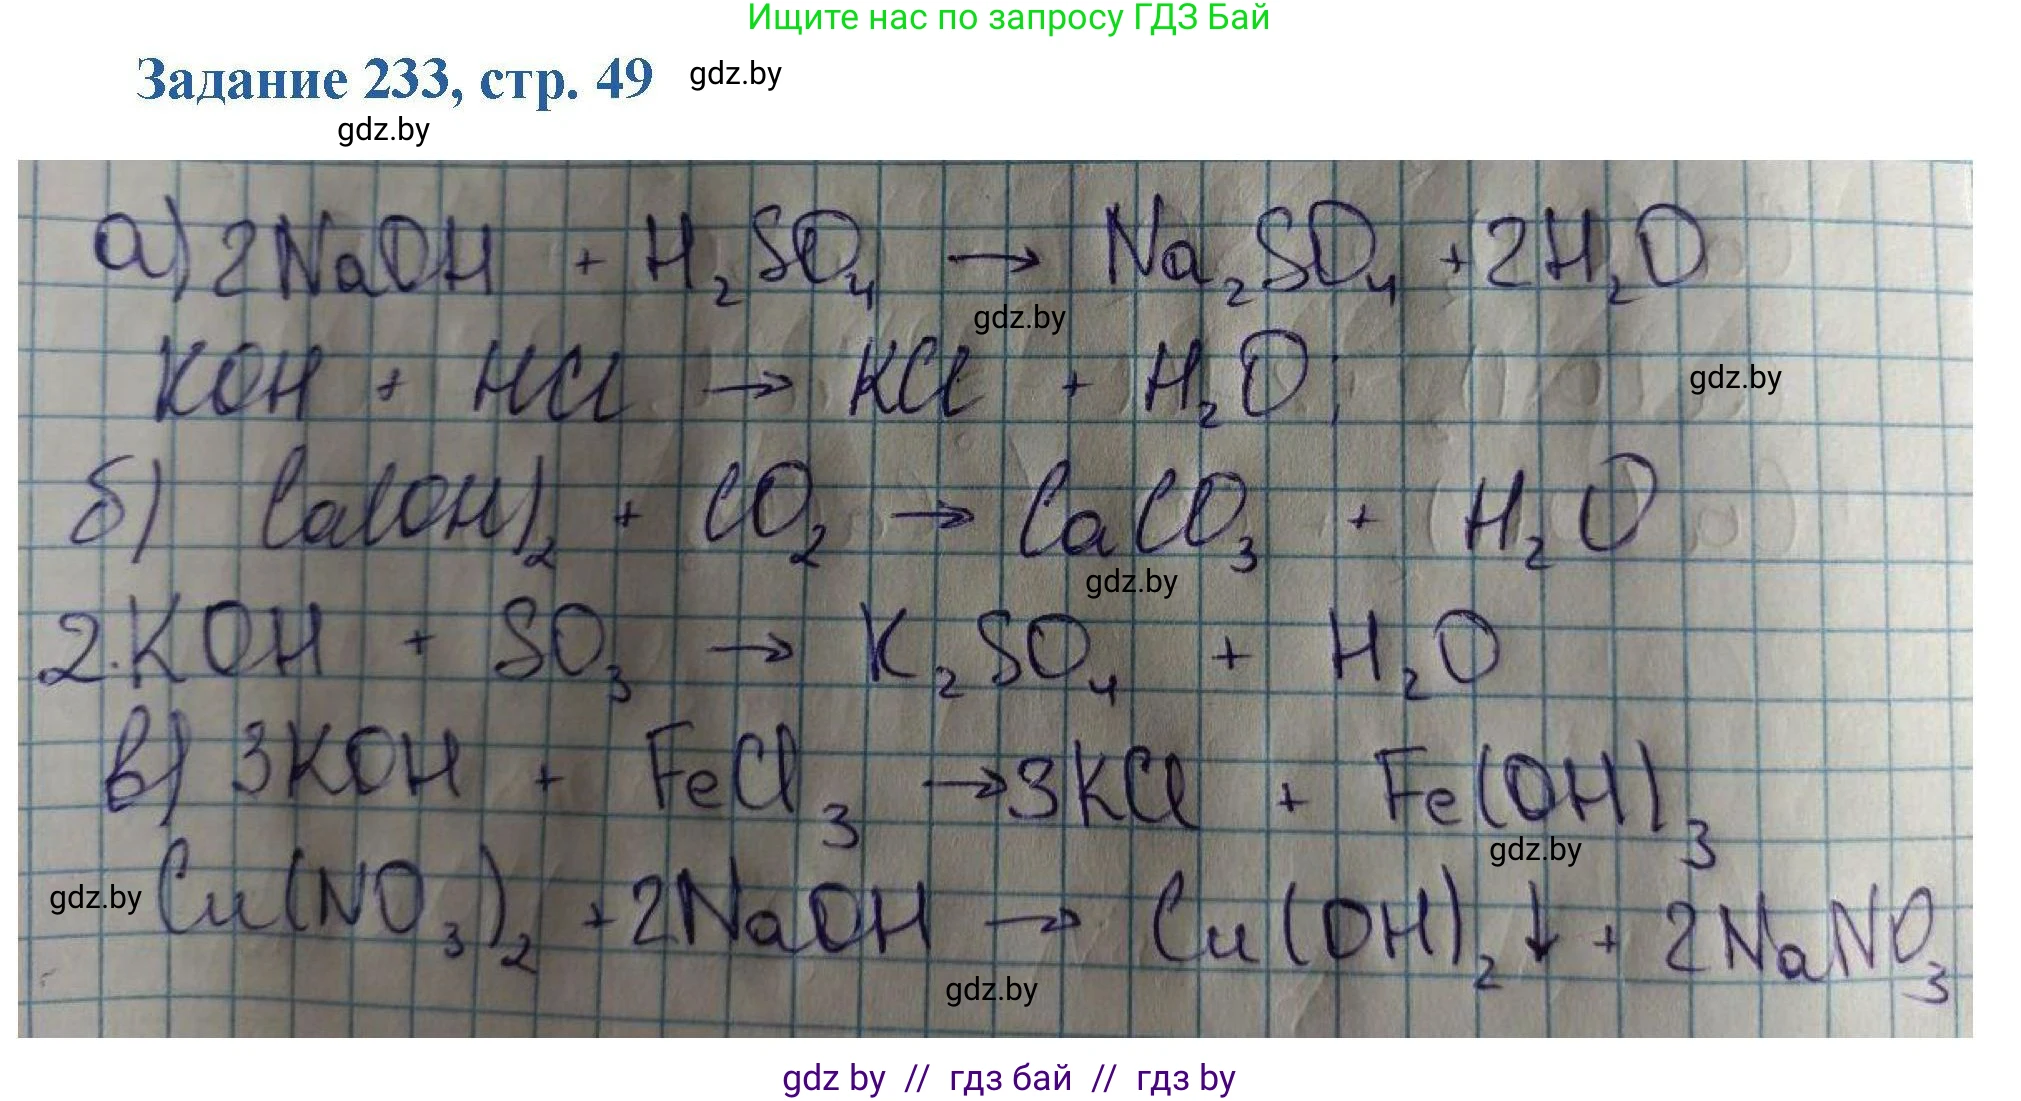 Ищите нас по запросу ГДЗ Бай
Задание 233, стр. 49 gdz.by
gdz.by
а) 2NaOH + H₂SO₄ → Na₂SO₄ + 2H₂O
gdz.by
KOH + HCl → KCl + H₂O;
gdz.by
б) Ca(OH)₂ + CO₂ → CaCO₃ + H₂O
gdz.by
2.KOH + SO₃ → K₂SO₄ + H₂O
в) 3KOH + FeCl₃ → 3KCl + Fe(OH)₃
gdz.by
gdz.by
Cu(NO₃)₂ + 2NaOH → Cu(OH)₂↓ + 2NaNO₃
gdz.by
gdz by // гдз бай // гдз by